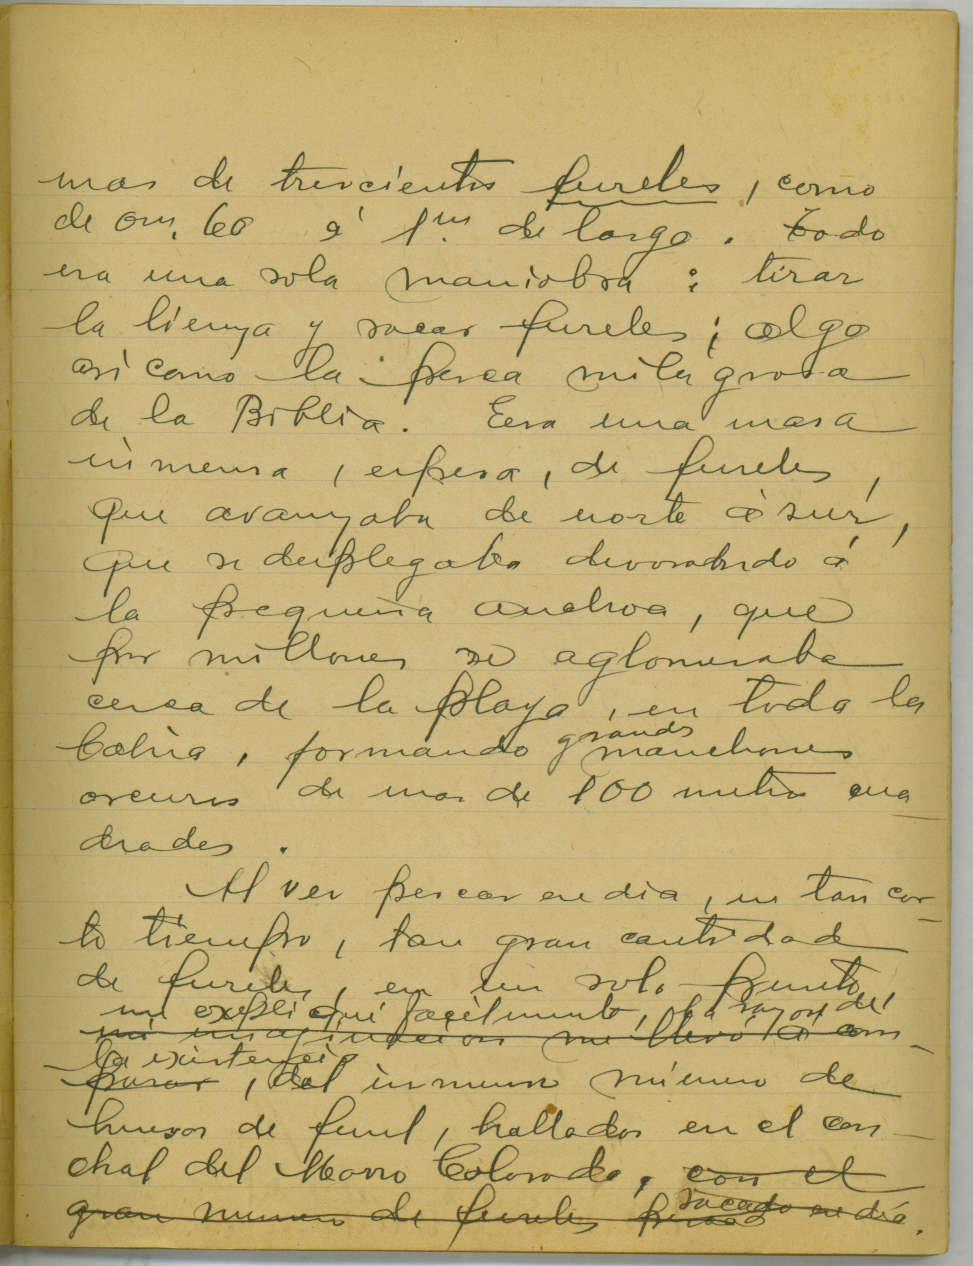 mas de trescientos fureles, como
de 0m. 60 á 1m. de largo. Todo
era una sola maniobra: tirar
la lienza y sacar fureles; algo
así como la pesca milagrosa
de la Biblia. Era una masa
inmensa, espesa, de fureles,
que avanzaba de norte á sur,
que se desplegaba devorando á
la pequeña anchoa, que
por millones se aglomeraba
cerca de la playa, en toda la
bahía, formando grandes manchones
oscuros de mas de 100 metros cua
drados.
Al ver pescar ese dia, en tan cor-
to tiempo, tan gran cantidad
de fureles, en un solo punto,
me expliqué facilmente, la razon de
mi imaginacion me llevó á com-
la existencia
parar, del inmenso número de
huesos de furel, hallados en el con-
chal del Morro Colorado, con el
sacado
gran numero de fureles ese día.